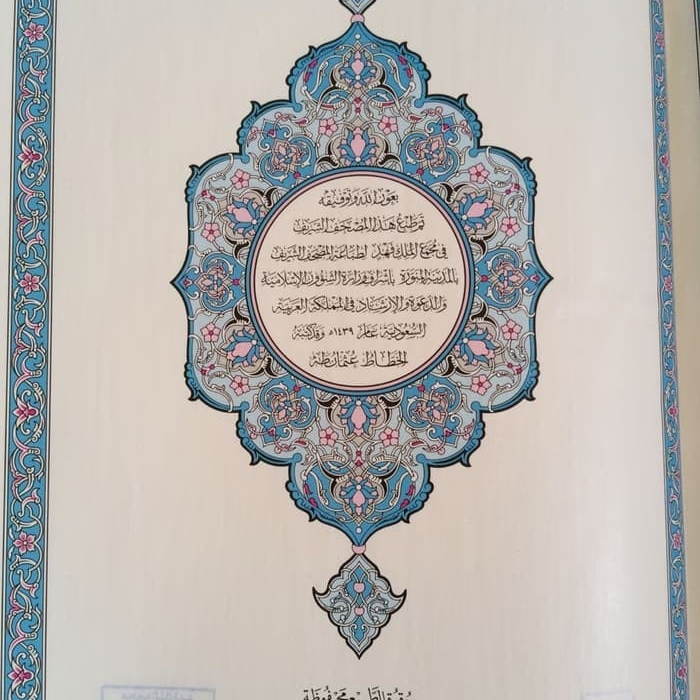 بعون الله وتوفيقه
تم طبع هذا المصحف الشريف
في مجمع الملك فهد لطباعة المصحف الشريف
بالمدينة المنورة بإشراف وزارة الشؤون الإسلامية
والدعوة والإرشاد في المملكة العربية
السعودية عام ١٤٣٩هـ وقد كتبه
الخطاط عثمان طه
حقوق الطبع محفوظة